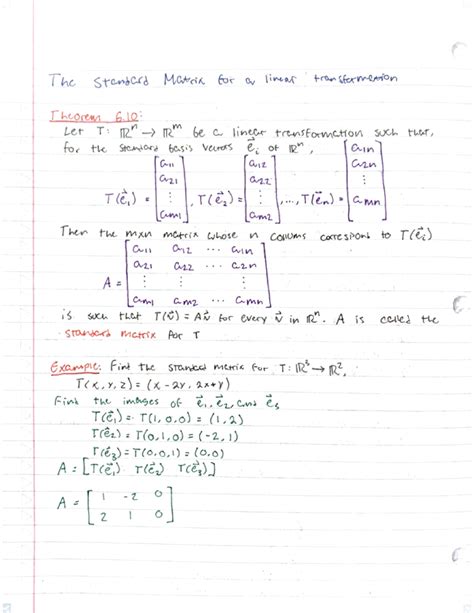 The Standard Matrix for a linear transformation
Theorem 6.10:
Let T: ℝⁿ → ℝᵐ be a linear transformation such that,
for the standard basis vectors e⃗ᵢ of ℝⁿ,
T(e⃗₁) = [a₁₁ a₂₁ ⋮ aₘ₁], T(e⃗₂) = [a₁₂ a₂₂ ⋮ aₘ₂], ..., T(e⃗ₙ) = [a₁ₙ a₂ₙ ⋮ aₘₙ]
Then the mxn matrix whose n colums correspond to T(e⃗ᵢ)
A = [a₁₁ a₁₂ ⋯ a₁ₙ
a₂₁ a₂₂ ⋯ a₂ₙ
⋮ ⋮ ⋮
aₘ₁ aₘ₂ ⋯ aₘₙ]
is such that T(v⃗) = Av⃗ for every v⃗ in ℝⁿ. A is called the
standard matrix for T
Example: Find the standard matrix for T: ℝ³ → ℝ²,
T(x, y, z) = (x - 2y, 2x + y)
Find the images of e⃗₁, e⃗₂, and e⃗₃
T(e⃗₁) = T(1, 0, 0) = (1, 2)
T(e⃗₂) = T(0, 1, 0) = (-2, 1)
T(e⃗₃) = T(0, 0, 1) = (0, 0)
A = [T(e⃗₁) T(e⃗₂) T(e⃗₃)]
A = [1 -2 0
2 1 0]